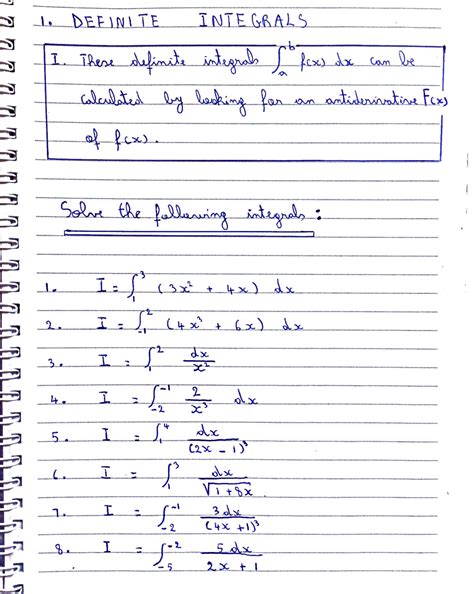 1. DEFINITE INTEGRALS
I. These definite integrals ∫_a^b f(x) dx can be
calculated by looking for an antiderivative F(x)
of f(x).
Solve the following integrals :
1. I = ∫_1^3 (3x² + 4x) dx
2. I = ∫_-1^2 (4x³ + 6x) dx
3. I = ∫_1^2 dx/x²
4. I = ∫_-2^-1 2/x³ dx
5. I = ∫_1^4 dx/(2x - 1)³
6. I = ∫_1^3 dx/√(1+8x)
7. I = ∫_-2^-1 3dx/(4x+1)³
8. I = ∫_-5^-2 5dx/(2x+1)